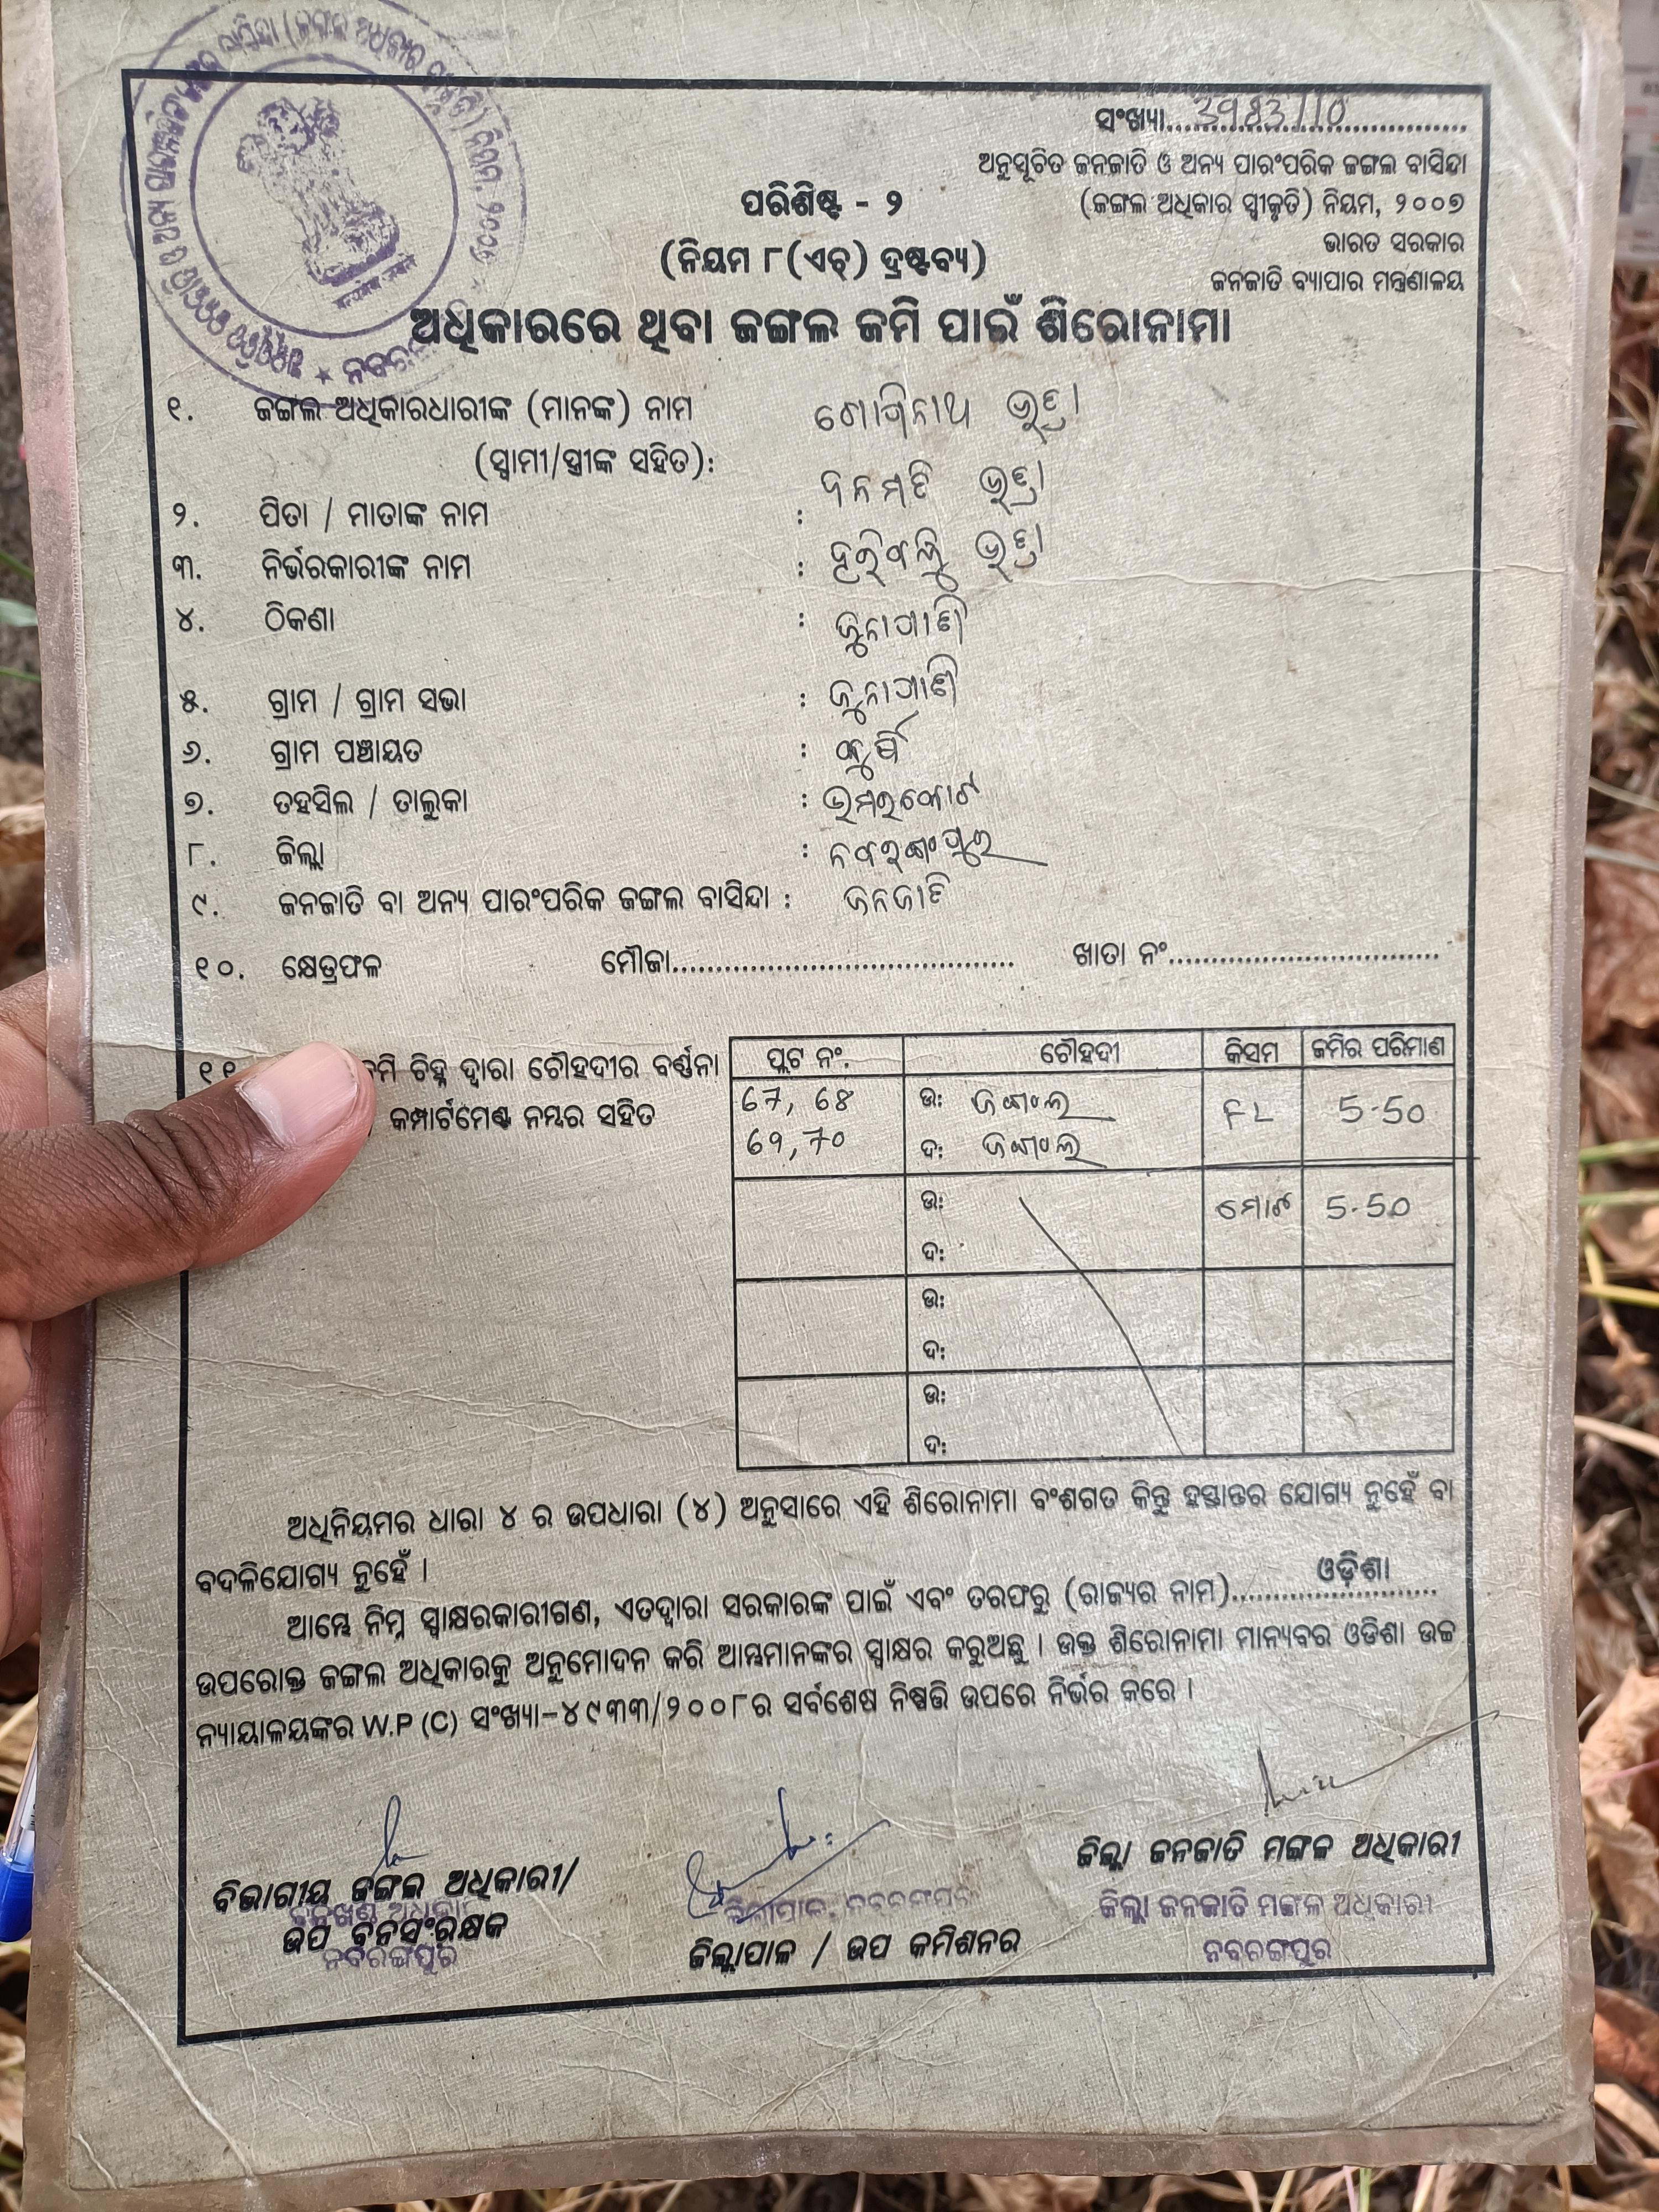 ସଂଖ୍ୟା
ଅନୁସୂଚିତ ଜନଜାତି ଓ ଅନ୍ୟ ପାରଂପରିକ ଜଙ୍ଗଲ ବାସିନ୍ଦା
ପରିଶିଷ୍ଟ - ୨
(ଜଙ୍ଗଲ ଅଧିକାର ସ୍ୱୀକୃତି) ନିୟମ, ୨୦୦୭
ଭାରତ ସରକାର
(ନିୟମ ୮(ଏଚ୍) ଦ୍ରଷ୍ଟବ୍ୟ)
ଜନଜାତି ବ୍ୟାପାର ମନ୍ତ୍ରଣାଳୟ
ଅଧିକାରରେ ଥିବା ଜଙ୍ଗଲ ଜମି ପାଇଁ ଶିରୋନାମା
୧. ଜଙ୍ଗଲ ଅଧିକାରଧାରୀଙ୍କ (ମାନଙ୍କ) ନାମ
(ସ୍ୱାମୀ/ସ୍ତ୍ରୀଙ୍କ ସହିତ):
୨. ପିତା / ମାତାଙ୍କ ନାମ :
୩. ନିର୍ଭରକାରୀଙ୍କ ନାମ :
୪. ଠିକଣା : ଜୁନାପାଣି
୫. ଗ୍ରାମ / ଗ୍ରାମ ସଭା : ଜୁନାପାଣି
୬. ଗ୍ରାମ ପଞ୍ଚାୟତ :
୭. ତହସିଲ / ତାଲୁକା : ଉମରକୋଟ
୮. ଜିଲ୍ଲା : ନବରଙ୍ଗପୁର
୯. ଜନଜାତି ବା ଅନ୍ୟ ପାରଂପରିକ ଜଙ୍ଗଲ ବାସିନ୍ଦା : ଜନଜାତି
୧୦. କ୍ଷେତ୍ରଫଳ ମୌଜା ଖାତା ନଂ
୧୧ ଜମି ଚିହ୍ନ ଦ୍ୱାରା ଚୌହଦୀର ବର୍ଣ୍ଣନା
କମ୍ପାର୍ଟମେଣ୍ଟ ନମ୍ବର ସହିତ
ପ୍ଲଟ ନଂ. ଚୌହଦୀ କିସମ ଜମିର ପରିମାଣ
67, 68 ଉ: ଜଙ୍ଗଲ FL 5-50
69, 70 ଦ: ଜଙ୍ଗଲ
ଉ: ମୋଟ 5-50
ଦ:
ଉ:
ଦ:
ଉ:
ଦ:
ଅଧିନିୟମର ଧାରା ୪ ର ଉପଧାରା (୪) ଅନୁସାରେ ଏହି ଶିରୋନାମା ବଂଶଗତ କିନ୍ତୁ ହସ୍ତାନ୍ତର ଯୋଗ୍ୟ ନୁହେଁ ବା
ବଦଳିଯୋଗ୍ୟ ନୁହେଁ ।
ଆମ୍ଭେ ନିମ୍ନ ସ୍ୱାକ୍ଷରକାରୀଗଣ, ଏତଦ୍ୱାରା ସରକାରଙ୍କ ପାଇଁ ଏବଂ ତରଫରୁ (ରାଜ୍ୟର ନାମ) ଓଡ଼ିଶା
ଉପରୋକ୍ତ ଜଙ୍ଗଲ ଅଧିକାରକୁ ଅନୁମୋଦନ କରି ଆମ୍ଭମାନଙ୍କର ସ୍ୱାକ୍ଷର କରୁଅଛୁ । ଉକ୍ତ ଶିରୋନାମା ମାନ୍ୟବର ଓଡିଶା ଉଚ୍ଚ
ନ୍ୟାୟାଳୟଙ୍କର W.P (C) ସଂଖ୍ୟା-୪୯୩୩/୨୦୦୮ର ସର୍ବଶେଷ ନିଷ୍ପତ୍ତି ଉପରେ ନିର୍ଭର କରେ ।
ବିଭାଗୀୟ ଜଙ୍ଗଲ ଅଧିକାରୀ/
ଉପ ବନସଂରକ୍ଷକ
ନବରଙ୍ଗପୁର
ଜିଲ୍ଲାପାଳ, ନବରଙ୍ଗପୁର
ଜିଲ୍ଲାପାଳ / ଉପ କମିଶନର
ଜିଲ୍ଲା ଜନଜାତି ମଙ୍ଗଳ ଅଧିକାରୀ
ଜିଲ୍ଲା ଜନଜାତି ମଙ୍ଗଳ ଅଧିକାରୀ
ନବରଙ୍ଗପୁର